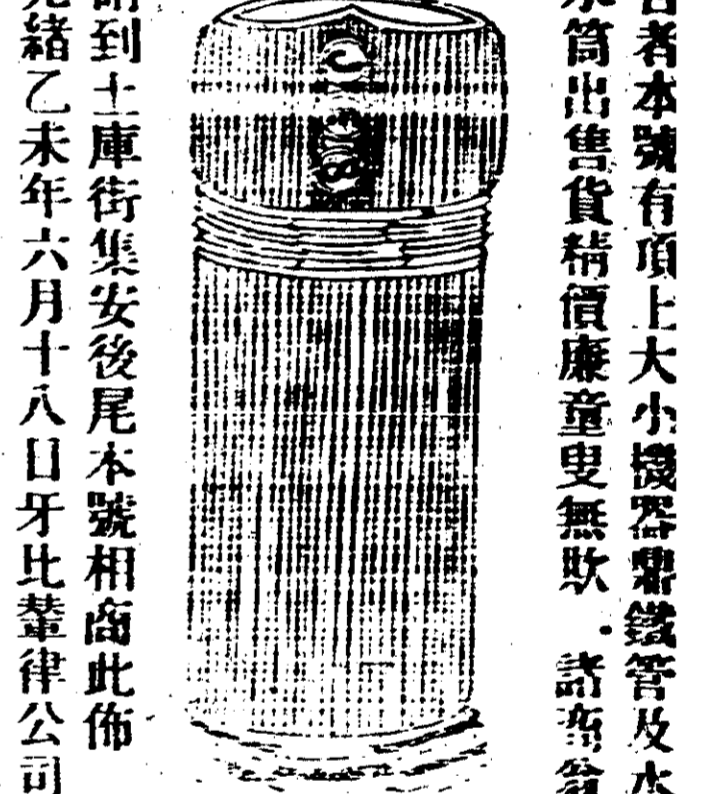 者本號有頂上大小機器鼎鐵管及水
筒出售貨精價廉童叟無欺．諸商翁
到土庫街集安後尾本號相商此佈
緒乙未年六月十八日牙比𦽦律公司